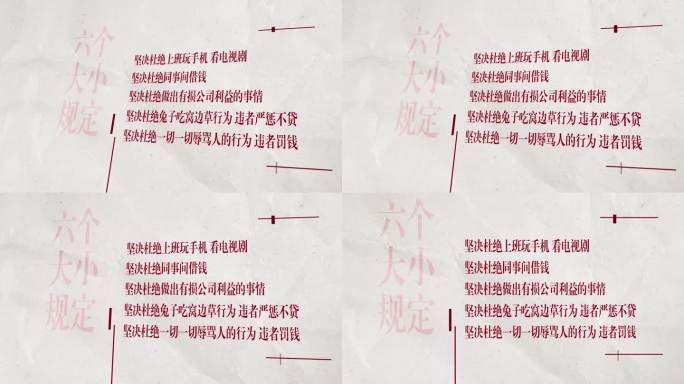 六个
大小
规定
坚决杜绝上班玩手机 看电视剧
坚决杜绝同事间借钱
坚决杜绝做出有损公司利益的事情
坚决杜绝兔子吃窝边草行为 违者严惩不贷
坚决杜绝一切一切辱骂人的行为 违者罚钱
六个
大小
规定
坚决杜绝上班玩手机 看电视剧
坚决杜绝同事间借钱
坚决杜绝做出有损公司利益的事情
坚决杜绝兔子吃窝边草行为 违者严惩不贷
坚决杜绝一切一切辱骂人的行为 违者罚钱
六个
大小
规定
坚决杜绝上班玩手机 看电视剧
坚决杜绝同事间借钱
坚决杜绝做出有损公司利益的事情
坚决杜绝兔子吃窝边草行为 违者严惩不贷
坚决杜绝一切一切辱骂人的行为 违者罚钱
六个
大小
规定
坚决杜绝上班玩手机 看电视剧
坚决杜绝同事间借钱
坚决杜绝做出有损公司利益的事情
坚决杜绝兔子吃窝边草行为 违者严惩不贷
坚决杜绝一切一切辱骂人的行为 违者罚钱